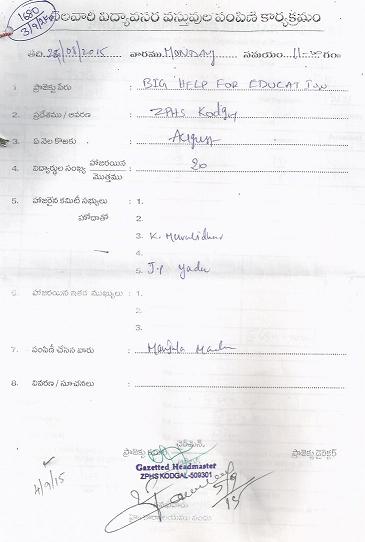 1680
3/9/15
నెలవారి విద్యావసర వస్తువుల పంపిణి కార్యక్రమం
తేది. 24/08/2015 వారము MONDAY సమయం 11-30 గం
1. ప్రాజెక్టు పేరు : BIG HELP FOR EDUCATION
2. ప్రదేశము / ఆవరణ : ZPHS Kodgal
3. ఏ నెల కొరకు : August
4. విద్యార్థుల సంఖ్య హాజరయిన మొత్తము : 20
5. హాజరైన కమిటీ సభ్యులు : 1.
హోదాతో 2.
3. K. Muralidhar
4.
5. J.P Yadav
6. హాజరయిన ఇతర ముఖ్యులు : 1.
2.
3.
7. పంపిణీ చేసిన వారు : Manjula
8. వివరణ / సూచనలు :
చైర్మెన్,
ప్రాజెక్టు ప్రాజెక్టు డైరెక్టర్
Gazetted Headmaster
ZPHS KODGAL-509301
4/9/15